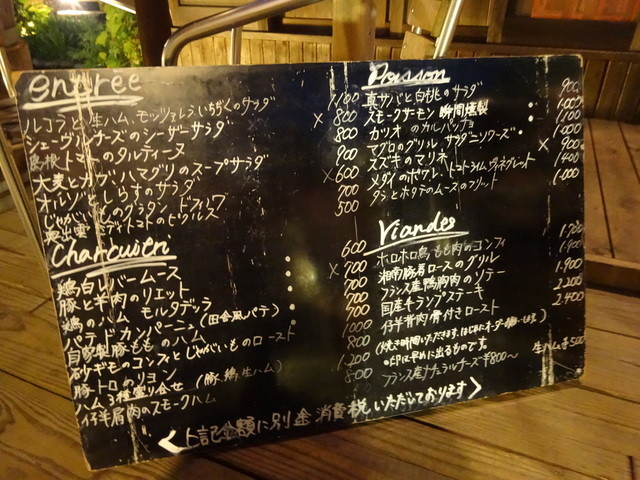 entrée
ルコラと生ハム、モッツァレラ、いちぢくのサラダ 1,100
シェーヴルチーズのシーザーサラダ × 800
島根トマトのタルティーヌ 800
大麦とカブ、ハマグリのスープサラダ 900
オルゾとしらすのサラダ ×600
じゃがいものグラタン ドフィノワ 700
奥出雲 トマトのピクルス 500
Charcuteri
鶏白レバームース 600
豚と羊肉のリエット ×700
鶏のハム モルタデッラ 700
パテドカンパーニュ(田舎風パテ) 700
自家製豚もものハム 700
砂ぎものコンフィとじゃがいものロースト 1000
豚トロのリヨン 800
ハム3種盛り合せ (豚,鶏,生ハム) 1,200
仔羊肩肉のスモークハム 800
Poisson
真サバと白桃のサラダ 900
スモークサーモン 瞬間燻製 1,000
カツオのカルパッチョ 1,100
マグロのグリル サラダニソワーズ 1,000
スズキのマリネ × 900
メダイのポワレ、トマトライムヴィネグレット 1,400
タラとホタテのムースのフリット 1,000
Viandes
ホロホロ鳥もも肉のコンフィ 1,700
湘南豚肩ロースのグリル 1,900
フランス産鴨胸肉のソテー 1,900
国産牛ランプステーキ 2,200
仔羊背肉骨付きロースト 2,400
(焼き時間いただきます。はじめにオーダー
●印は早めに出るものです。
フランス産ナチュラルチーズ¥800～
生ハム¥500
＜上記金額に別途消費税いただいております＞